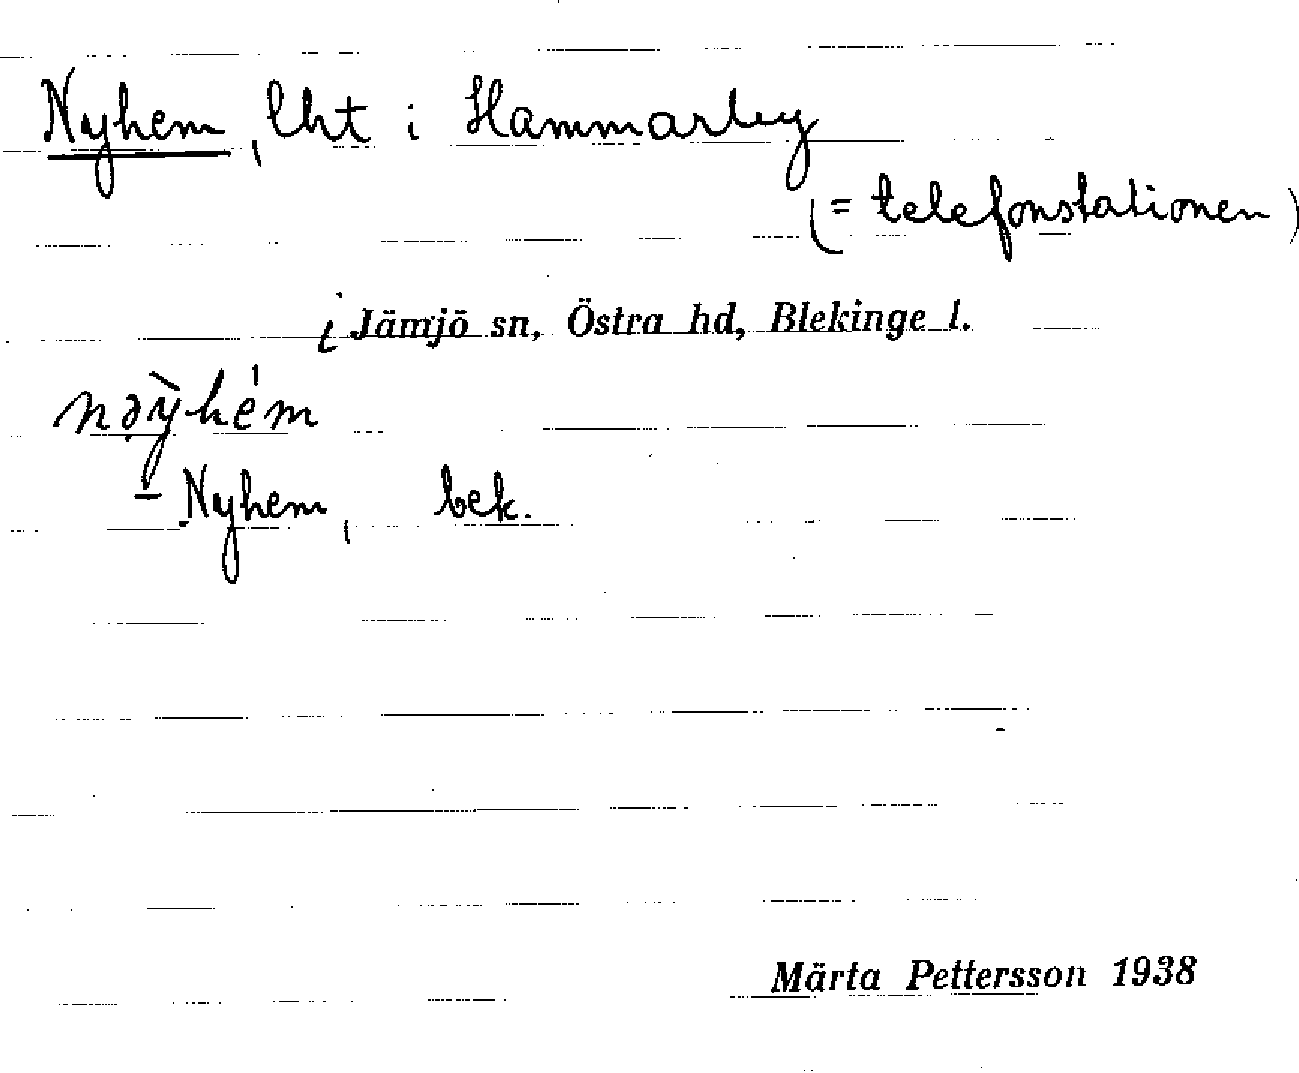 Nyhem, lht i Hammarby
(= telefonstationen)
i Jämjö sn, Östra hd, Blekinge l.
nəỳhém
– Nyhem, bek.
Märta Pettersson 1938